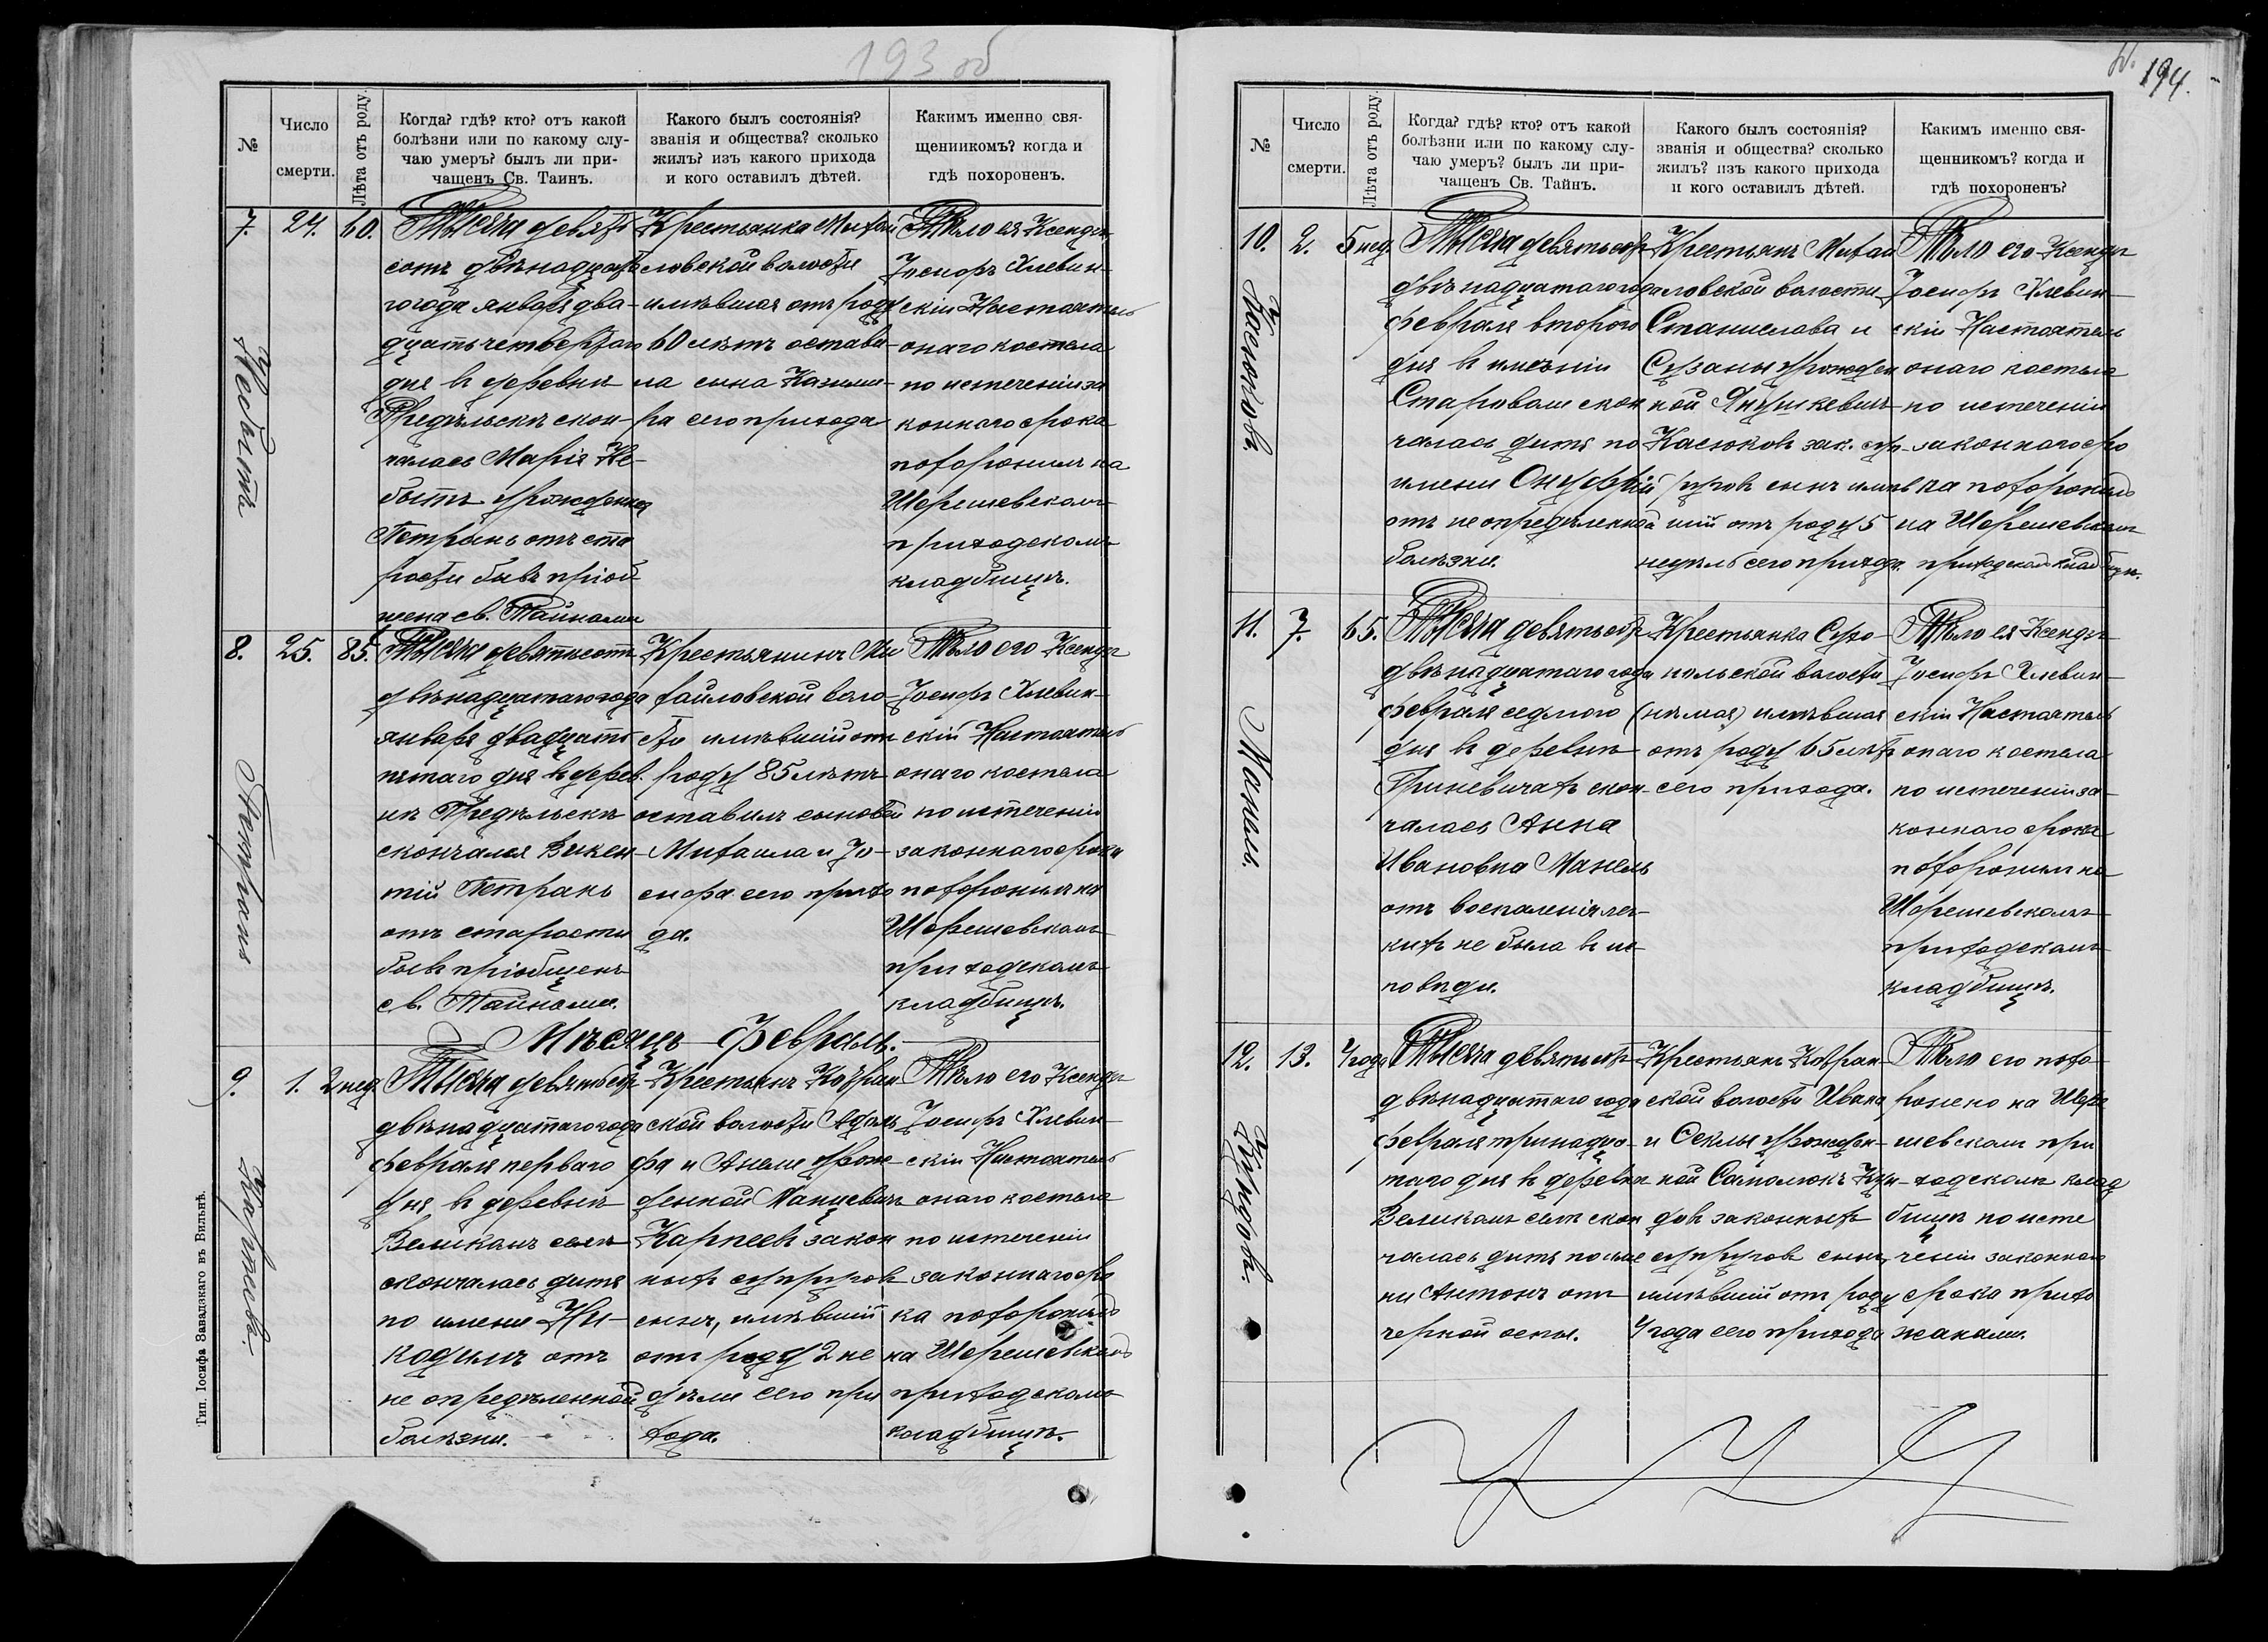 193 об
№
Число
смерти.
Лѣта отъ роду.
Когда? гдѣ? кто? отъ какой
болѣзни или по какому слу-
чаю умеръ? былъ ли при-
чащенъ Св. Таинъ.
Какого былъ состоянія?
званія и общества? сколько
жилъ? изъ какого прихода
и кого оставилъ дѣтей.
Какимъ именно свя-
щенникомъ? когда и
гдѣ похороненъ.
7.
24.
60.
Небытъ
Тысяча девять
сотъ двѣнадцата
го года января два-
дцать четвертаго
дня въ деревнѣ
Предѣльскѣ скон-
чалась Марія Не-
бытъ урожденная
Петрань отъ ста
рости бывъ пріоб
щена св. Тайнами
Крестьянка Михай
ловской волости
имѣвшая отъ роду
60 лѣтъ остави-
ла сына Казими-
ра сего прихода
Тѣло ея Ксендзъ
Іосифъ Хлевин-
скій Настоятель
онаго костела
по истеченіи за
коннаго срока
похоронилъ на
Шерешевскомъ
приходскомъ
кладбищѣ.
8.
25.
85.
Петрань
Тысяча девятьсотъ
двѣнадцатаго года
января двадцать
пятаго дня въ дерев.
нѣ Предѣльскѣ
скончался Викен-
тій Петрань
отъ старости
бывъ пріобщенъ
св. Тайнами.
Крестьянинъ Ми
хайловской воло-
сти имѣвшій отъ
роду 85 лѣтъ
оставилъ сыновей
Михаила и Іо-
сифа сего прихо
да.
Тѣло его Ксендзъ
Іосифъ Хлевин-
скій Настоятель
онаго костела
по истеченіи
законнаго срока
похоронилъ на
Шерешевскомъ
приходскомъ
кладбищѣ.
Мѣсяцъ Февраль.
9.
1.
2 нед.
Карпеевъ.
Тысяча девятьсотъ
двѣнадцатаго года
февраля перваго
дня въ деревнѣ
Великомъ селѣ
скончалась дитя
по имени Ни-
кодимъ отъ
не опредѣленной
болѣзни.
Крестьянъ Котран
ской волости Адоль
фа и Анели урож
денной Манцевичъ
Карпеевъ закон
ныхъ супруговъ
сынъ, имѣвшій
отъ роду 2 не
дѣли сего при
хода.
Тѣло его Ксендзъ
Іосифъ Хлевин-
скій Настоятель
онаго костела
по истеченіи
законнаго сро
ка похоронилъ
на Шерешевскомъ
приходскомъ
кладбищѣ.
Тип. Іосифа Завадзкаго въ Вильнѣ.
194.
№
Число
смерти.
Лѣта отъ роду.
Когда? гдѣ? кто? отъ какой
болѣзни или по какому слу-
чаю умеръ? былъ ли при-
чащенъ Св. Тайнъ.
Какого былъ состоянія?
званія и общества? сколько
жилъ? изъ какого прихода
и кого оставилъ дѣтей.
Какимъ именно свя-
щенникомъ? когда и
гдѣ похороненъ?
10.
2.
5 нед.
Касюковъ.
Тысяча девятьсотъ
двѣнадцатаго года
февраля второго
дня въ имѣніи
Староволи скон
чалась дитя по
имени Онуфрій
отъ не опредѣленной
болѣзни.
Крестьянъ Михай
ловской волости
Станислава и
Сузаны урожден
ной Янушкевичъ
Касюковъ зак. суп-
руговъ сынъ имѣв
шій отъ роду 5
недѣль сего прихода.
Тѣло его Ксендзъ
Іосифъ Хлевин-
скій Настоятель
онаго костела
по истеченіи
законнаго сро
ка похоронилъ
на Шерешевскомъ
приходскомъ кладбищѣ.
11.
7.
65.
Манель.
Тысяча девятьсотъ
двѣнадцатаго года
февраля седмого
дня въ деревнѣ
Гриневичахъ скон-
чалась Анна
Ивановна Манель
отъ воспаленія лег-
кихъ не была въ ис-
повѣди.
Крестьянка Сухо-
польской волости
(нѣмая) имѣвшая
отъ роду 65 лѣтъ
сего прихода.
Тѣло ея Ксендзъ
Іосифъ Хлевин-
скій Настоятель
онаго костела
по истеченіи за-
коннаго срока
похоронилъ на
Шерешевскомъ
приходскомъ
кладбищѣ.
12.
13.
4 года
Тысяча девятьсотъ
двѣнадцатаго года
февраля тринадца-
таго дня въ деревнѣ
Великомъ селѣ скон
чалась дитя по име
ни Антонъ отъ
черной оспы.
Крестьянъ Котран-
ской волости Ивана
и Теклы урожден-
ной Самолюкъ
довъ законныхъ
супруговъ сынъ,
имѣвшій отъ роду
4 года сего прихода
Тѣло его похо-
ронено на Шере
шевскомъ при
ходскомъ клад
бищѣ по исте
ченіи законнаго
срока прихо
жанами.